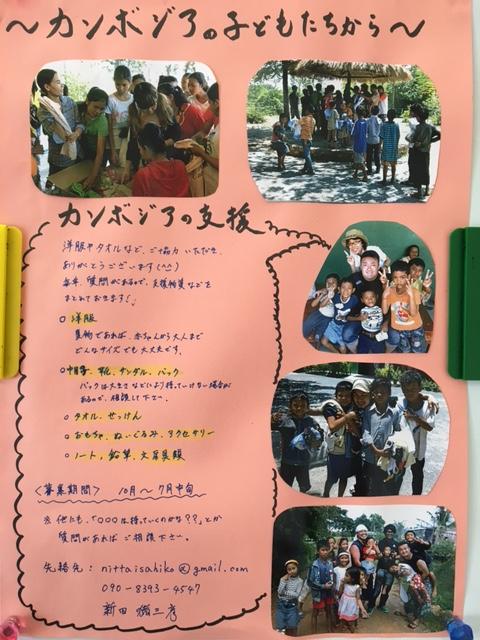 ～カンボジアの子どもたちから～
カンボジアの支援
洋服やタオルなど、ご協力いただき、
ありがとうございます(^^)
毎年、質問があるので、支援物資などを
まとめておきます!
○ 洋服
夏物であれば、赤ちゃんから大人まで
どんなサイズでも大丈夫です。
○帽子、靴、サンダル、バック
バックは大きさなどにより持っていけない場合が
あるので、相談して下さい。
○ タオル、せっけん
○ おもちゃ、ぬいぐるみ、アクセサリー
○ ノート、鉛筆、文房具類
〈募集期間〉 10月～7月中旬
※ 他にも、「○○○は持っていくのかな??」とか
質問があればご相談下さい。
先絡先: nittaisahiko@gmail.com
090-8393-4547
新田